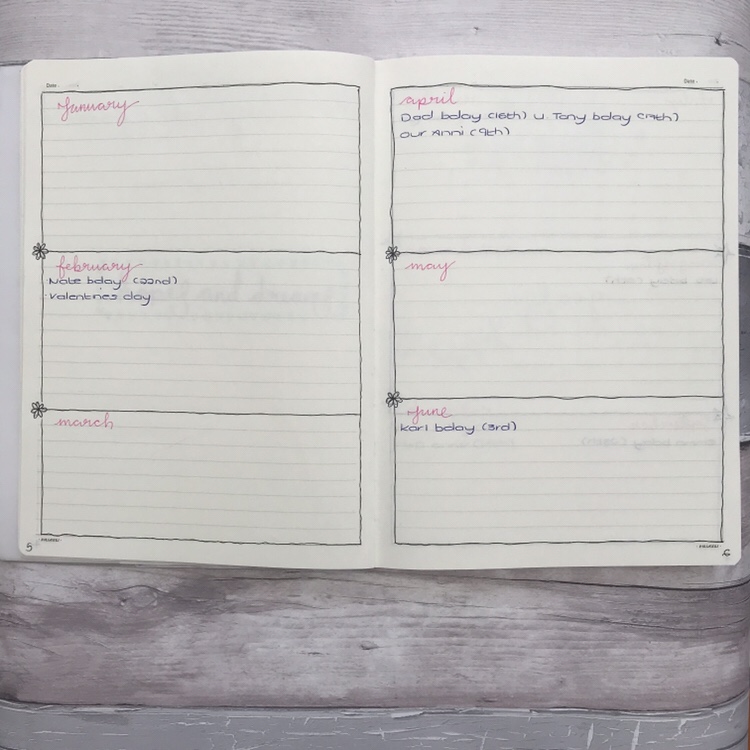 Date
January
february
Nate bday (22nd)
Valentines day
march
5
Date
april
Dad bday (16th) U Tony bday (19th)
our Anni (9th)
may
June
Karl bday (3rd)
6